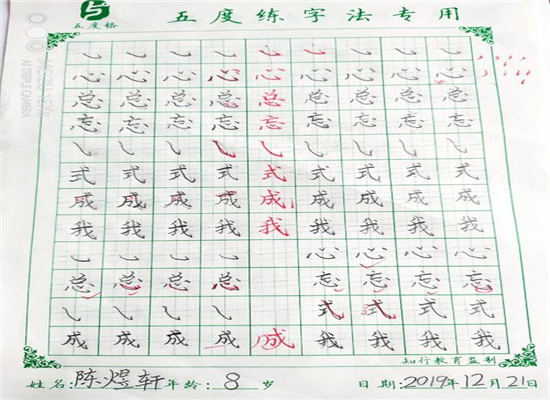 五度格
五度练字法专用
㇃㇃㇃㇃㇃㇃㇃㇃㇃
心心心心心心心心心
总总总总总总总总总
忘忘忘忘忘忘忘忘忘
㇂㇂㇂㇂㇂㇂㇂㇂㇂
式式式式式式式式式
成成成成成成成成成
我我我我我我我我我
㇃㇃㇃㇃心心心心
总总总总忘忘忘忘
㇂㇂㇂㇂式式式式
成成成成成我我我我
知行教育监制
姓名:陈煜轩年龄:8岁 日期:2019年12月21日
AI TRIPLE CAMERA